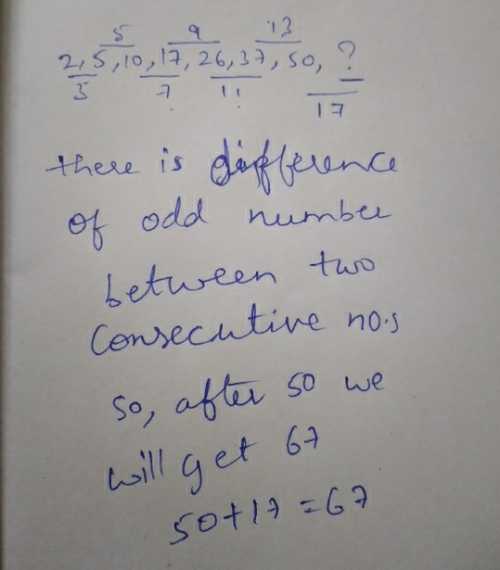 5 9 13
2, 5, 10, 17, 26, 37, 50, ?
3 7 11 17
there is difference
of odd number
between two
consecutive no.s
so, after 50 we
will get 67
50+17=67